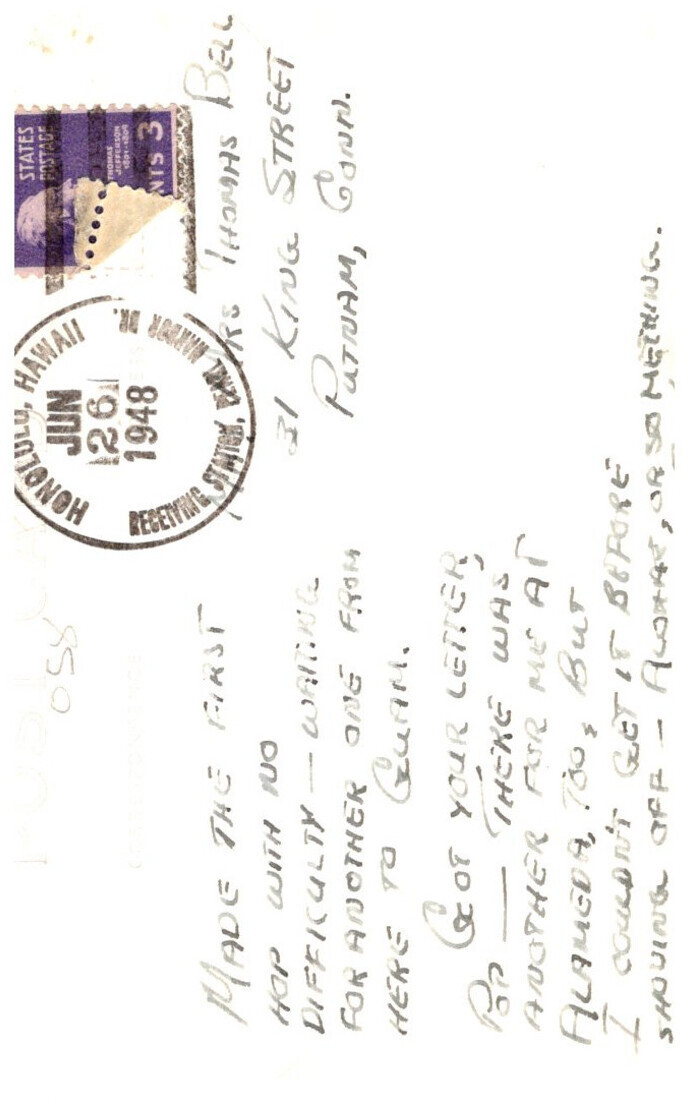 MADE THE FIRST
HOP WITH NO
DIFFICULTY — WAITING
FOR ANOTHER ONE FROM
HERE TO GUAM.
GOT YOUR LETTER,
POP — THERE WAS
ANOTHER FOR ME AT
ALAMEDA, TOO, BUT
I COULDN'T GET IT BEFORE
SHOVING OFF — ALOHAE, OR SOMETHING.
058
HONOLULU, HAWAII
JUN
26
1948
RECEIVING STATION, PEARL HARBOR BR.
STATES
POSTAGE
THOMAS
JEFFERSON
1801-1809
NTS 3
MRS THOMAS BELL
31 KING STREET
PUTNAM, CONN.